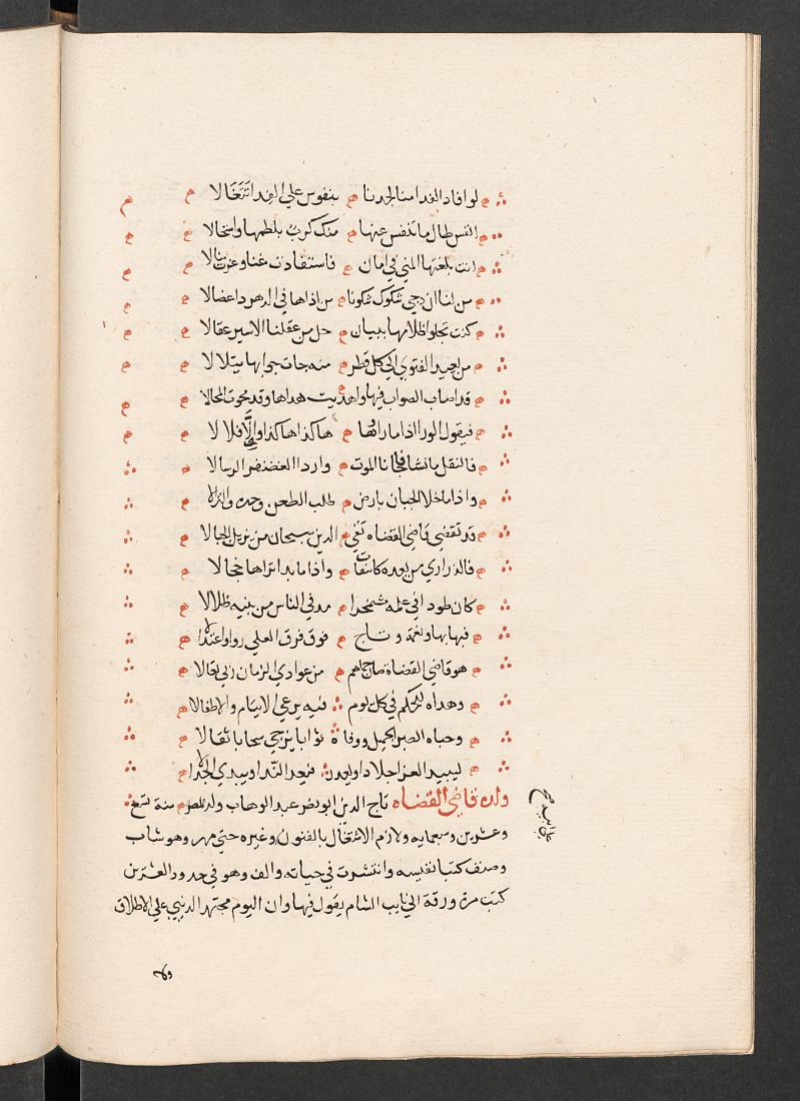 لو افاد الفدا منا لجدنا بنفوس علي الفدا تتغالا
انفس طال ما تنفس عنها منك كرب بلطمها واستحالا
انت بلغتها المني في امان فاستفادت غنا وعزت منالا
من لنا ان دجي شكوك شكونا من اذاها في الدهر داعضالا
كنت تجلوا ظلامها ببيان حل من عقلنا الاسير عقالا
من يعيد الفتوي الي كل قطر منه جات جوابها يتلالا
قد اصاب الصواب فيها واهديت هداها وقد محوت المحالا
فيقول الورا اذا ما راها هاكذا هاكذا والا فلا لا
فالنقل ما نشا فجانا الموت واردا الغضنفر الرسالا
واذا ما خلا الجبان بارض طلب الطعن وحده والنزالا
قد تقضي قاضي القضاه تقي الدين سبحان من يزيل الجبالا
فالدراري من بعده كاسفات واذا ما بدا تراها خجالا
كان طودا في علمه مشمخرا مد في الناس من بنيه ظلالا
فبها بها ونعمة وتاج فوق فرق العلي رواوا اعتدالا
هو قاضي القضاة صان حماهم من عوادي الزمان ربي تعالا
وهداه للحكم في كل يوم فيه يرعي الايتام والاطفالا
وحباه الصبر الجميل ووفاة ثوابا يزجي سحابا ثقالا
ليبيد العدا جلادا ويعدن فيعد الندا ويبدي الجدالا
ولده قاضي القضاه تاج الدين ابو نصر عبد الوهاب ولد بمصر سنة تسع
وعشرين وسبعمايه ولازم الاشتغال بالفنون وغيره حتي مهر وهو شاب
وصنف كتبا نفيسه وانتشرت في حياته والف وهو في حدود العشرين
كتب مرة ورقة الي نايب الشام يقول فيها وان اليوم مجتهد الدنيي علي الاطلاق